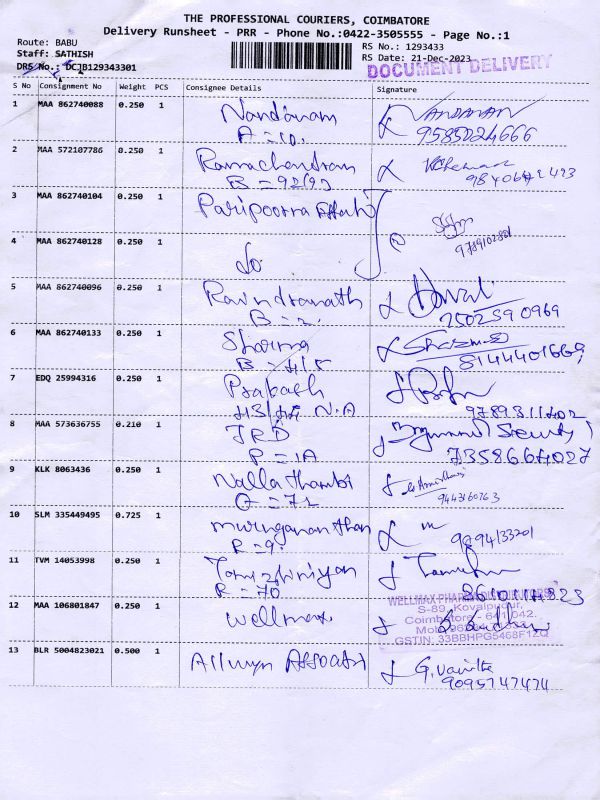 THE PROFESSIONAL COURIERS, COIMBATORE
Delivery Runsheet - PRR - Phone No.:0422-3505555 - Page No.:1
Route: BABU
Staff: SATHISH
DRS No.: DCJB129343301
RS No.: 1293433
RS Date: 21-Dec-2023
DOCUMENT DELIVERY
S No Consignment No Weight PCS Consignee Details Signature
1 MAA 862740088 0.250 1 Nandanam NANDANAM
A = 10. 9585024666
2 MAA 572107786 0.250 1 Ramachandran
B = 92/93
3 MAA 862740104 0.250 1 Paripoorna
4 MAA 862740128 0.250 1 Do
5 MAA 862740096 0.250 1 Ravindranath
B = 2. 7502590969
6 MAA 862740133 0.250 1 Sharma
8144401669
7 EDQ 25994316 0.250 1 Prakash
N.A 9789311402
8 MAA 573636755 0.210 1 JRD Security
P = 1A 7358664027
9 KLK 8063436 0.250 1 Nalla thambi
G = 72 9443160763
10 SLM 335449495 0.725 1 muruganan than
R = 9. 9894133201
11 TVM 14053998 0.250 1 Tamizhiniyan
R = 70
12 MAA 106801847 0.250 1 Wellmax
WELLMAX PHARMA
S-89, Kovalpudur,
Coimbatore - 641 042.
GSTIN: 33BBHPG5468F1ZQ
13 BLR 5004823021 0.500 1 Allwyn G. Vanitha
9095747474